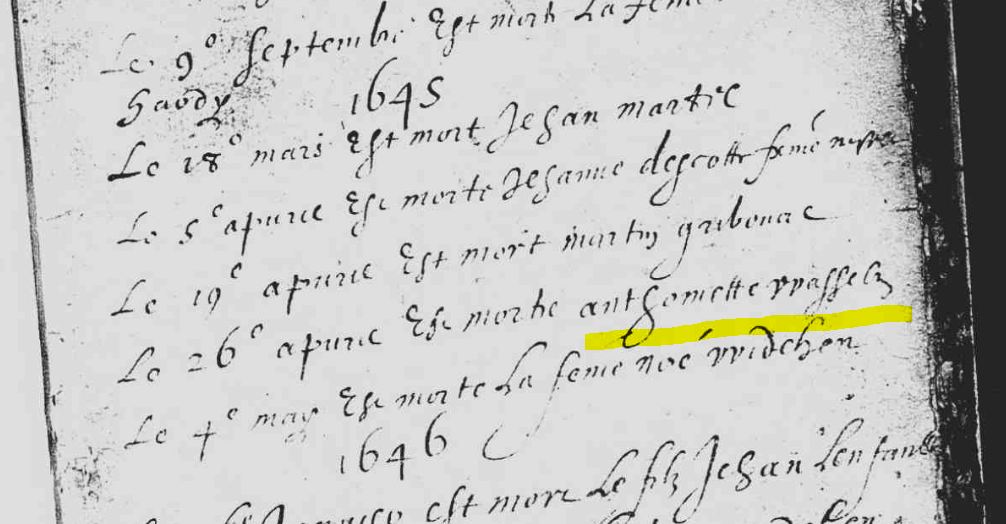 Le 9e septembre Est morte La feme
hardy
1645
Le 18e mars Est mort Jehan martel
Le 5e apvril Est morte Jehanne descotte feme
Le 19e apvril Est mort martin gribouac
Le 26e apvril Est morte anthoinette wasselin
Le 4e may Est morte La feme noé
1646
Est mort Le filz Jehan Lenfant